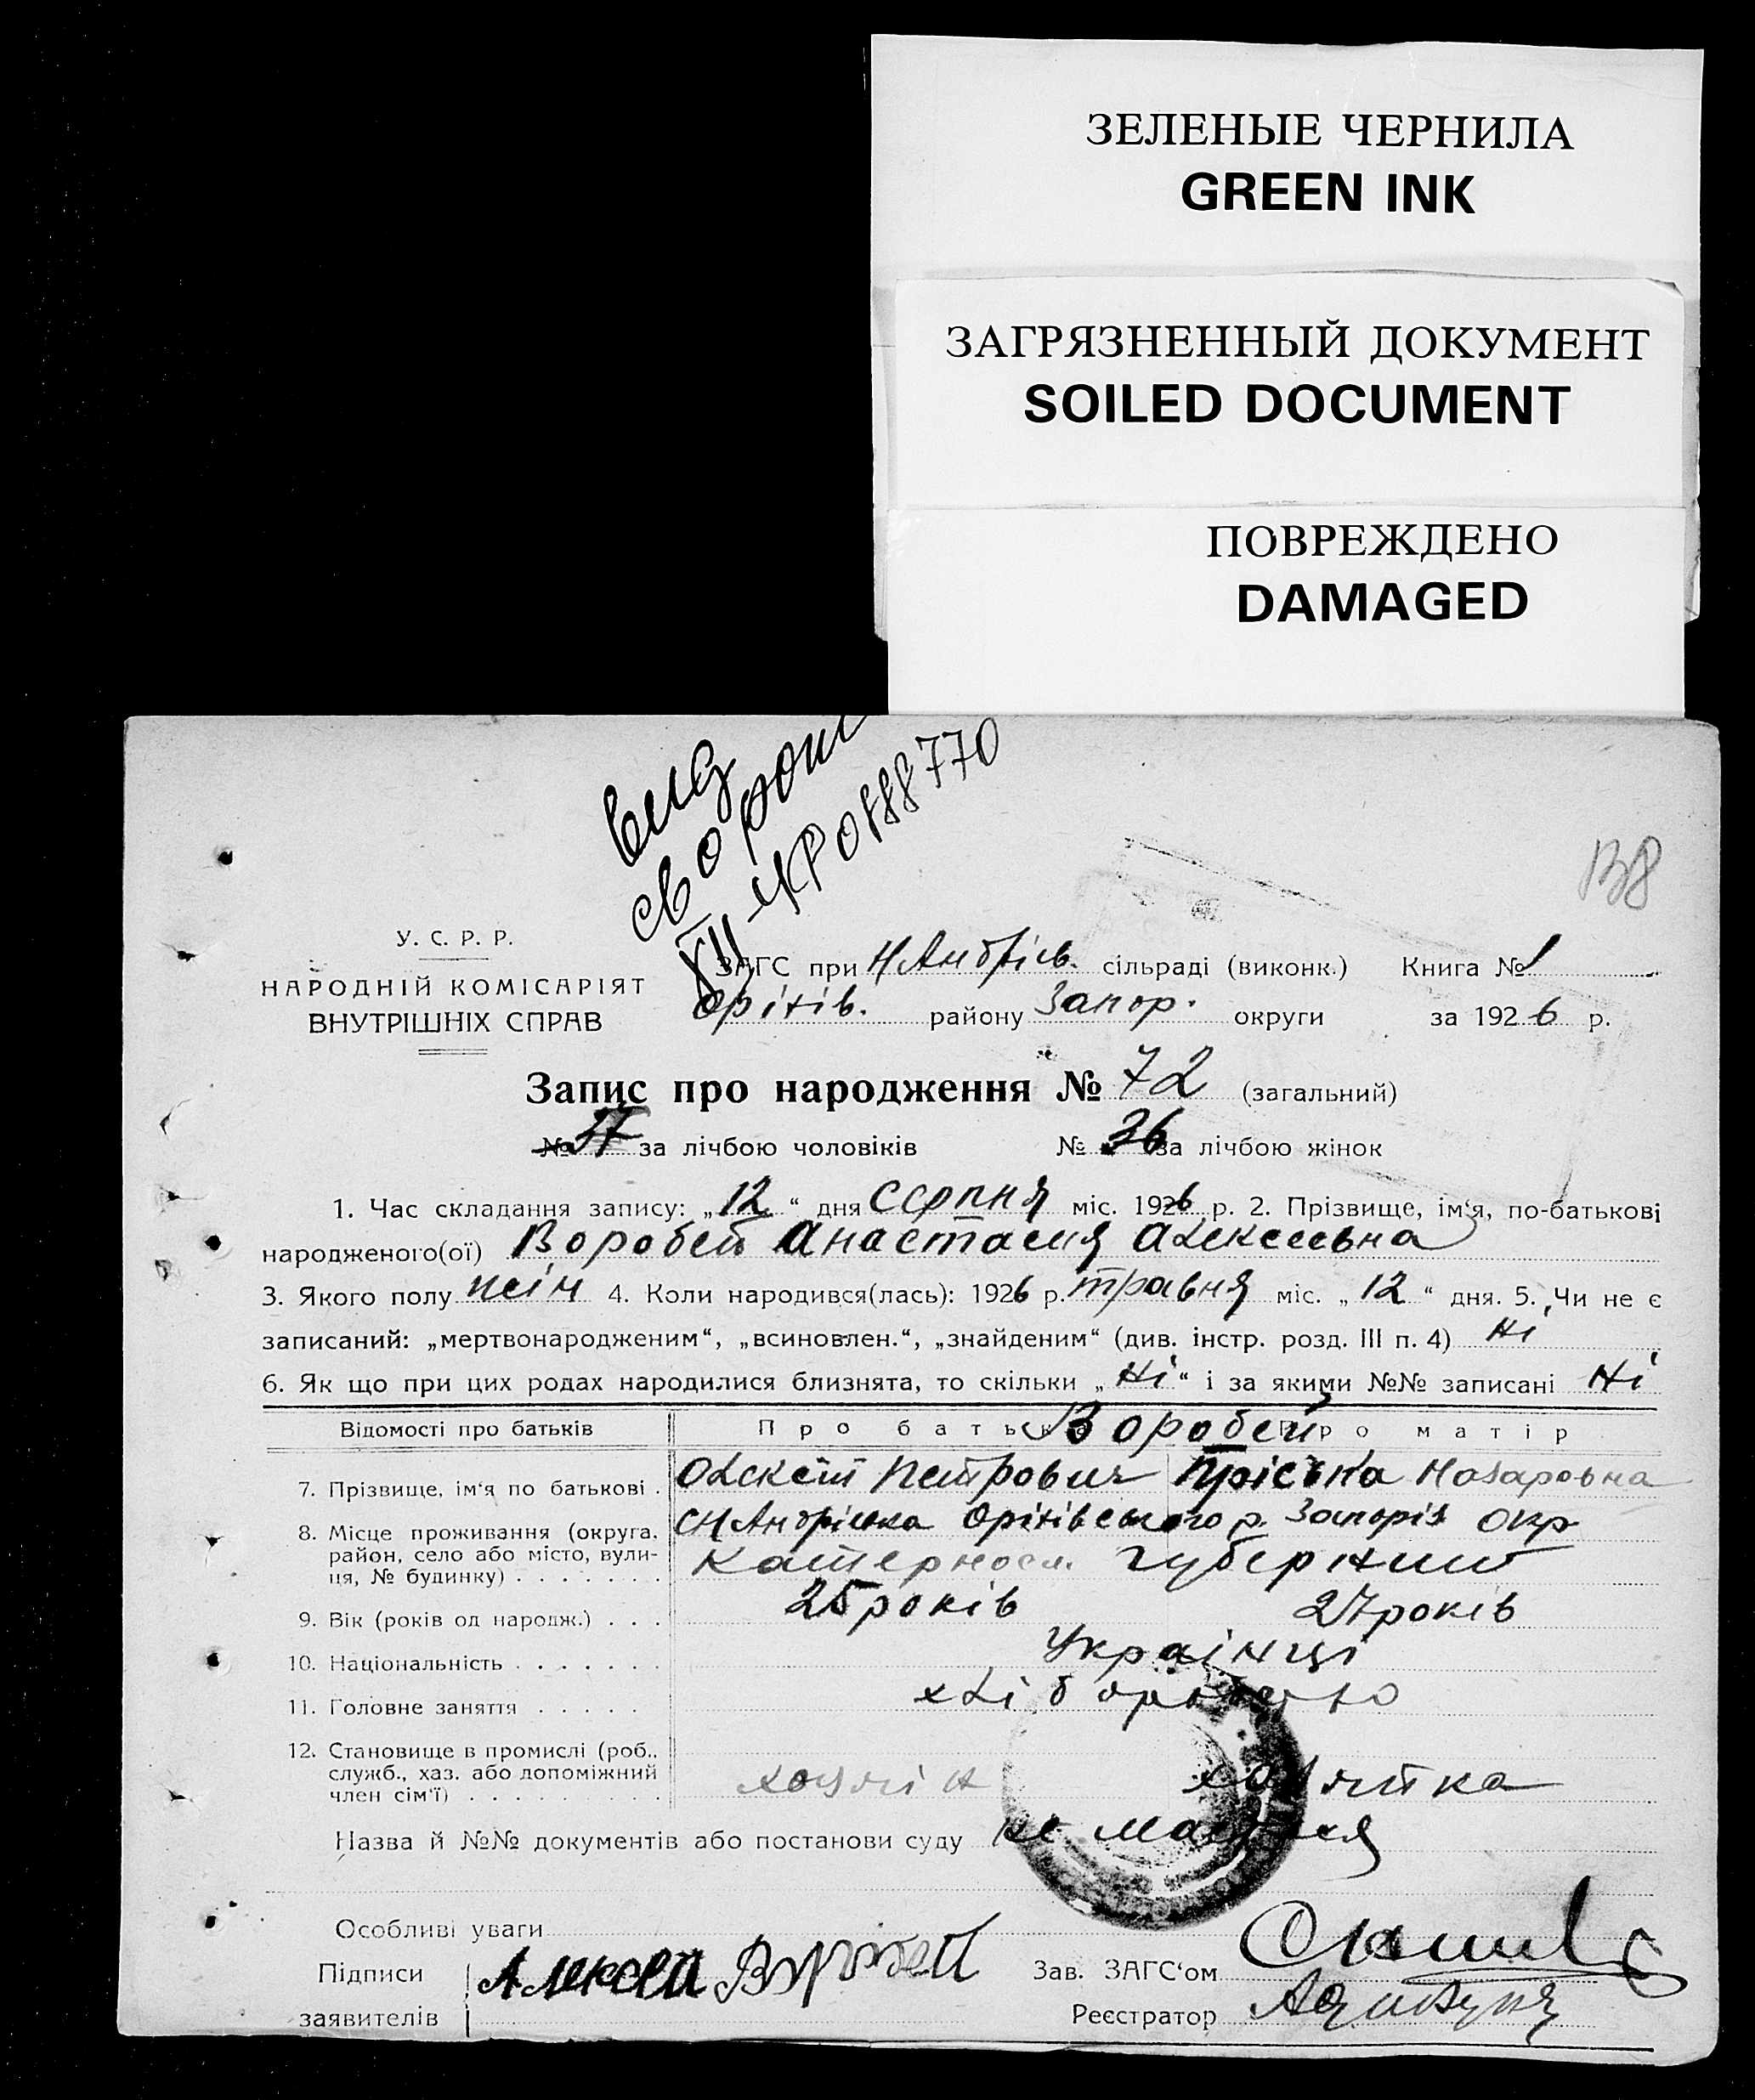 ЗЕЛЕНЫЕ ЧЕРНИЛА
GREEN INK
ЗАГРЯЗНЕННЫЙ ДОКУМЕНТ
SOILED DOCUMENT
ПОВРЕЖДЕНО
DAMAGED
вид
св о рожд
XII-УР 0888770
138
У. С. Р. Р.
НАРОДНІЙ КОМІСАРІЯТ
ВНУТРІШНІХ СПРАВ
ЗАГС при Н Андріів. сільраді (виконк.) Книга № 1
Оріхів. району Запор. округи за 1926 р.
Запис про народження № 72 (загальний)
№ 37 за лічбою чоловіків № 36 за лічбою жінок
1. Час складання запису: „12“ дня Серпня міс. 1926 р. 2. Прізвище, ім'я, по-батькові
народженого(ої) Воробей Анастасия Алексеевна
3. Якого полу жін 4. Коли народився(лась): 1926 р. травня міс. „12“ дня. 5. Чи не є
записаний: „мертвонародженим“, „всиновлен.“, „знайденим“ (див. інстр. розд. III п. 4) Ні
6. Як що при цих родах народилися близнята, то скільки „Ні“ і за якими №№ записані Ні
Відомості про батьків Про батька Воробей Про матір
7. Прізвище, ім'я по батькові . Олексій Петрович Пріська Назаровна
8. Місце проживання (округа, район, село або місто, вулиця, № будинку) . . . . . . . С Н Андріівка Оріхівського р. Запоріз окр
Катериносл. губернии
9. Вік (років од народж.) . . . 25 років 27 років
10. Національність . . . . . . . Українці
11. Головне заняття . . . . . хліборобство
12. Становище в промислі (роб.,
служб., хаз. або допоміжний
член сім'ї) . . . . . . . . . хозяїн хозяйка
Назва й №№ документів або постанови суду не мається
Особливі уваги
Підписи Алексей Воробей Зав. ЗАГС'ом
заявителів Реєстратор